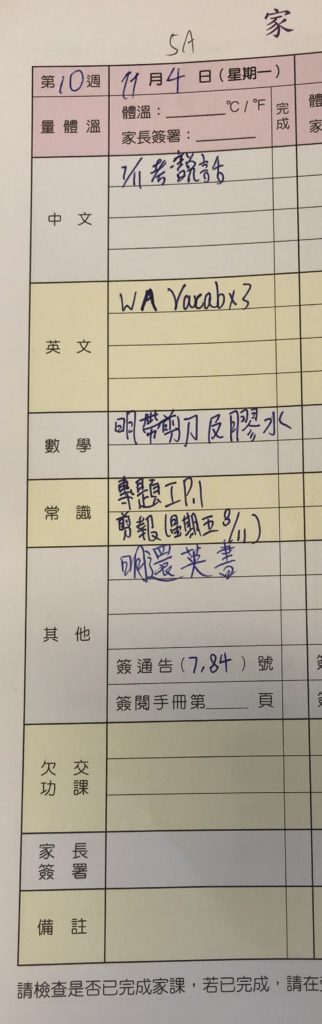 家
5A
第10週 11月4日(星期一)
量體溫 體溫：______℃/℉ 完成
家長簽署：______
中文 7/11 考說話
英文 WA Vacabx3
數學 明帶剪刀及膠水
常識 專題工P.1
剪報(星期五 8/11)
其他 明還英書
簽通告(7,84)號
簽閱手冊第____頁
欠交功課
家長簽署
備註
請檢查是否已完成家課，若已完成，請在